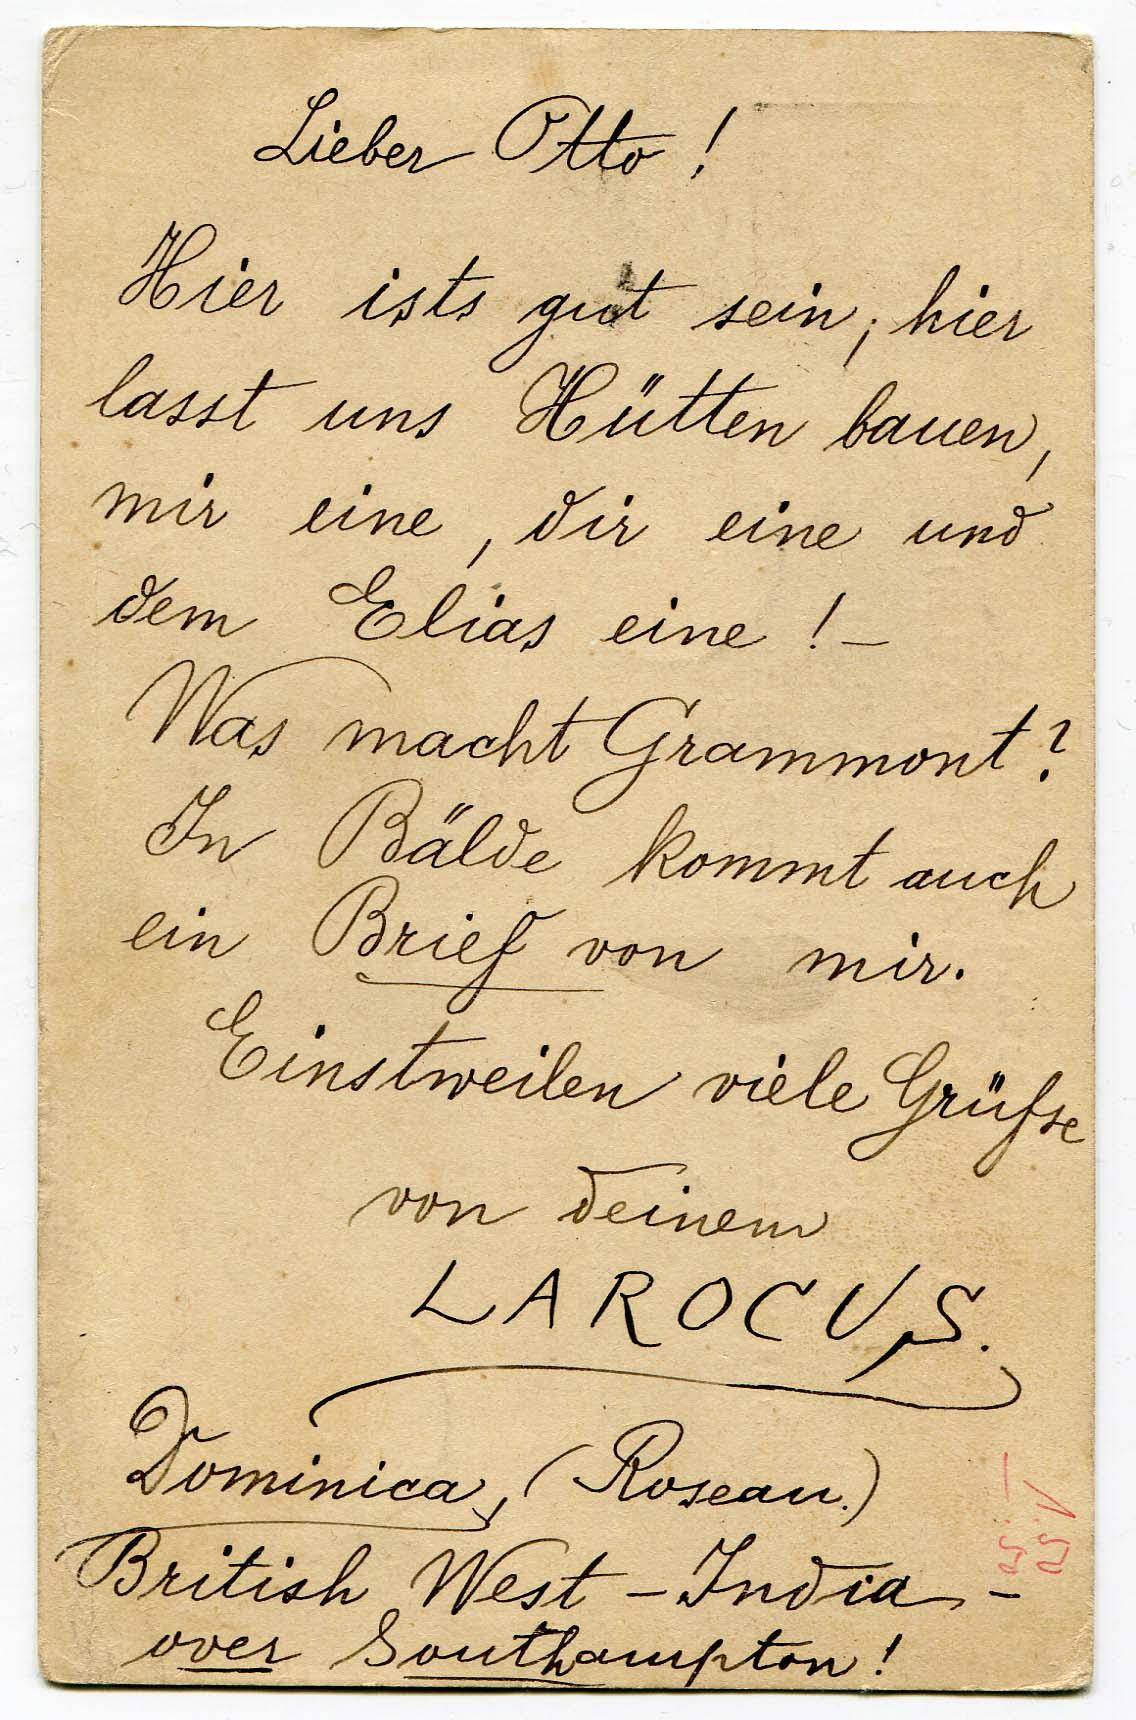 Lieber Otto!
Hier ists gut sein; hier
lasst uns Hütten bauen,
mir eine, dir eine und
dem Elias eine! –
Was macht Grammont?
In Bälde kommt auch
ein Brief von mir.
Einstweilen viele Grüfse
von deinem
LAROCUS.
Dominica, (Roseau.)
British West – India –
over Southampton!